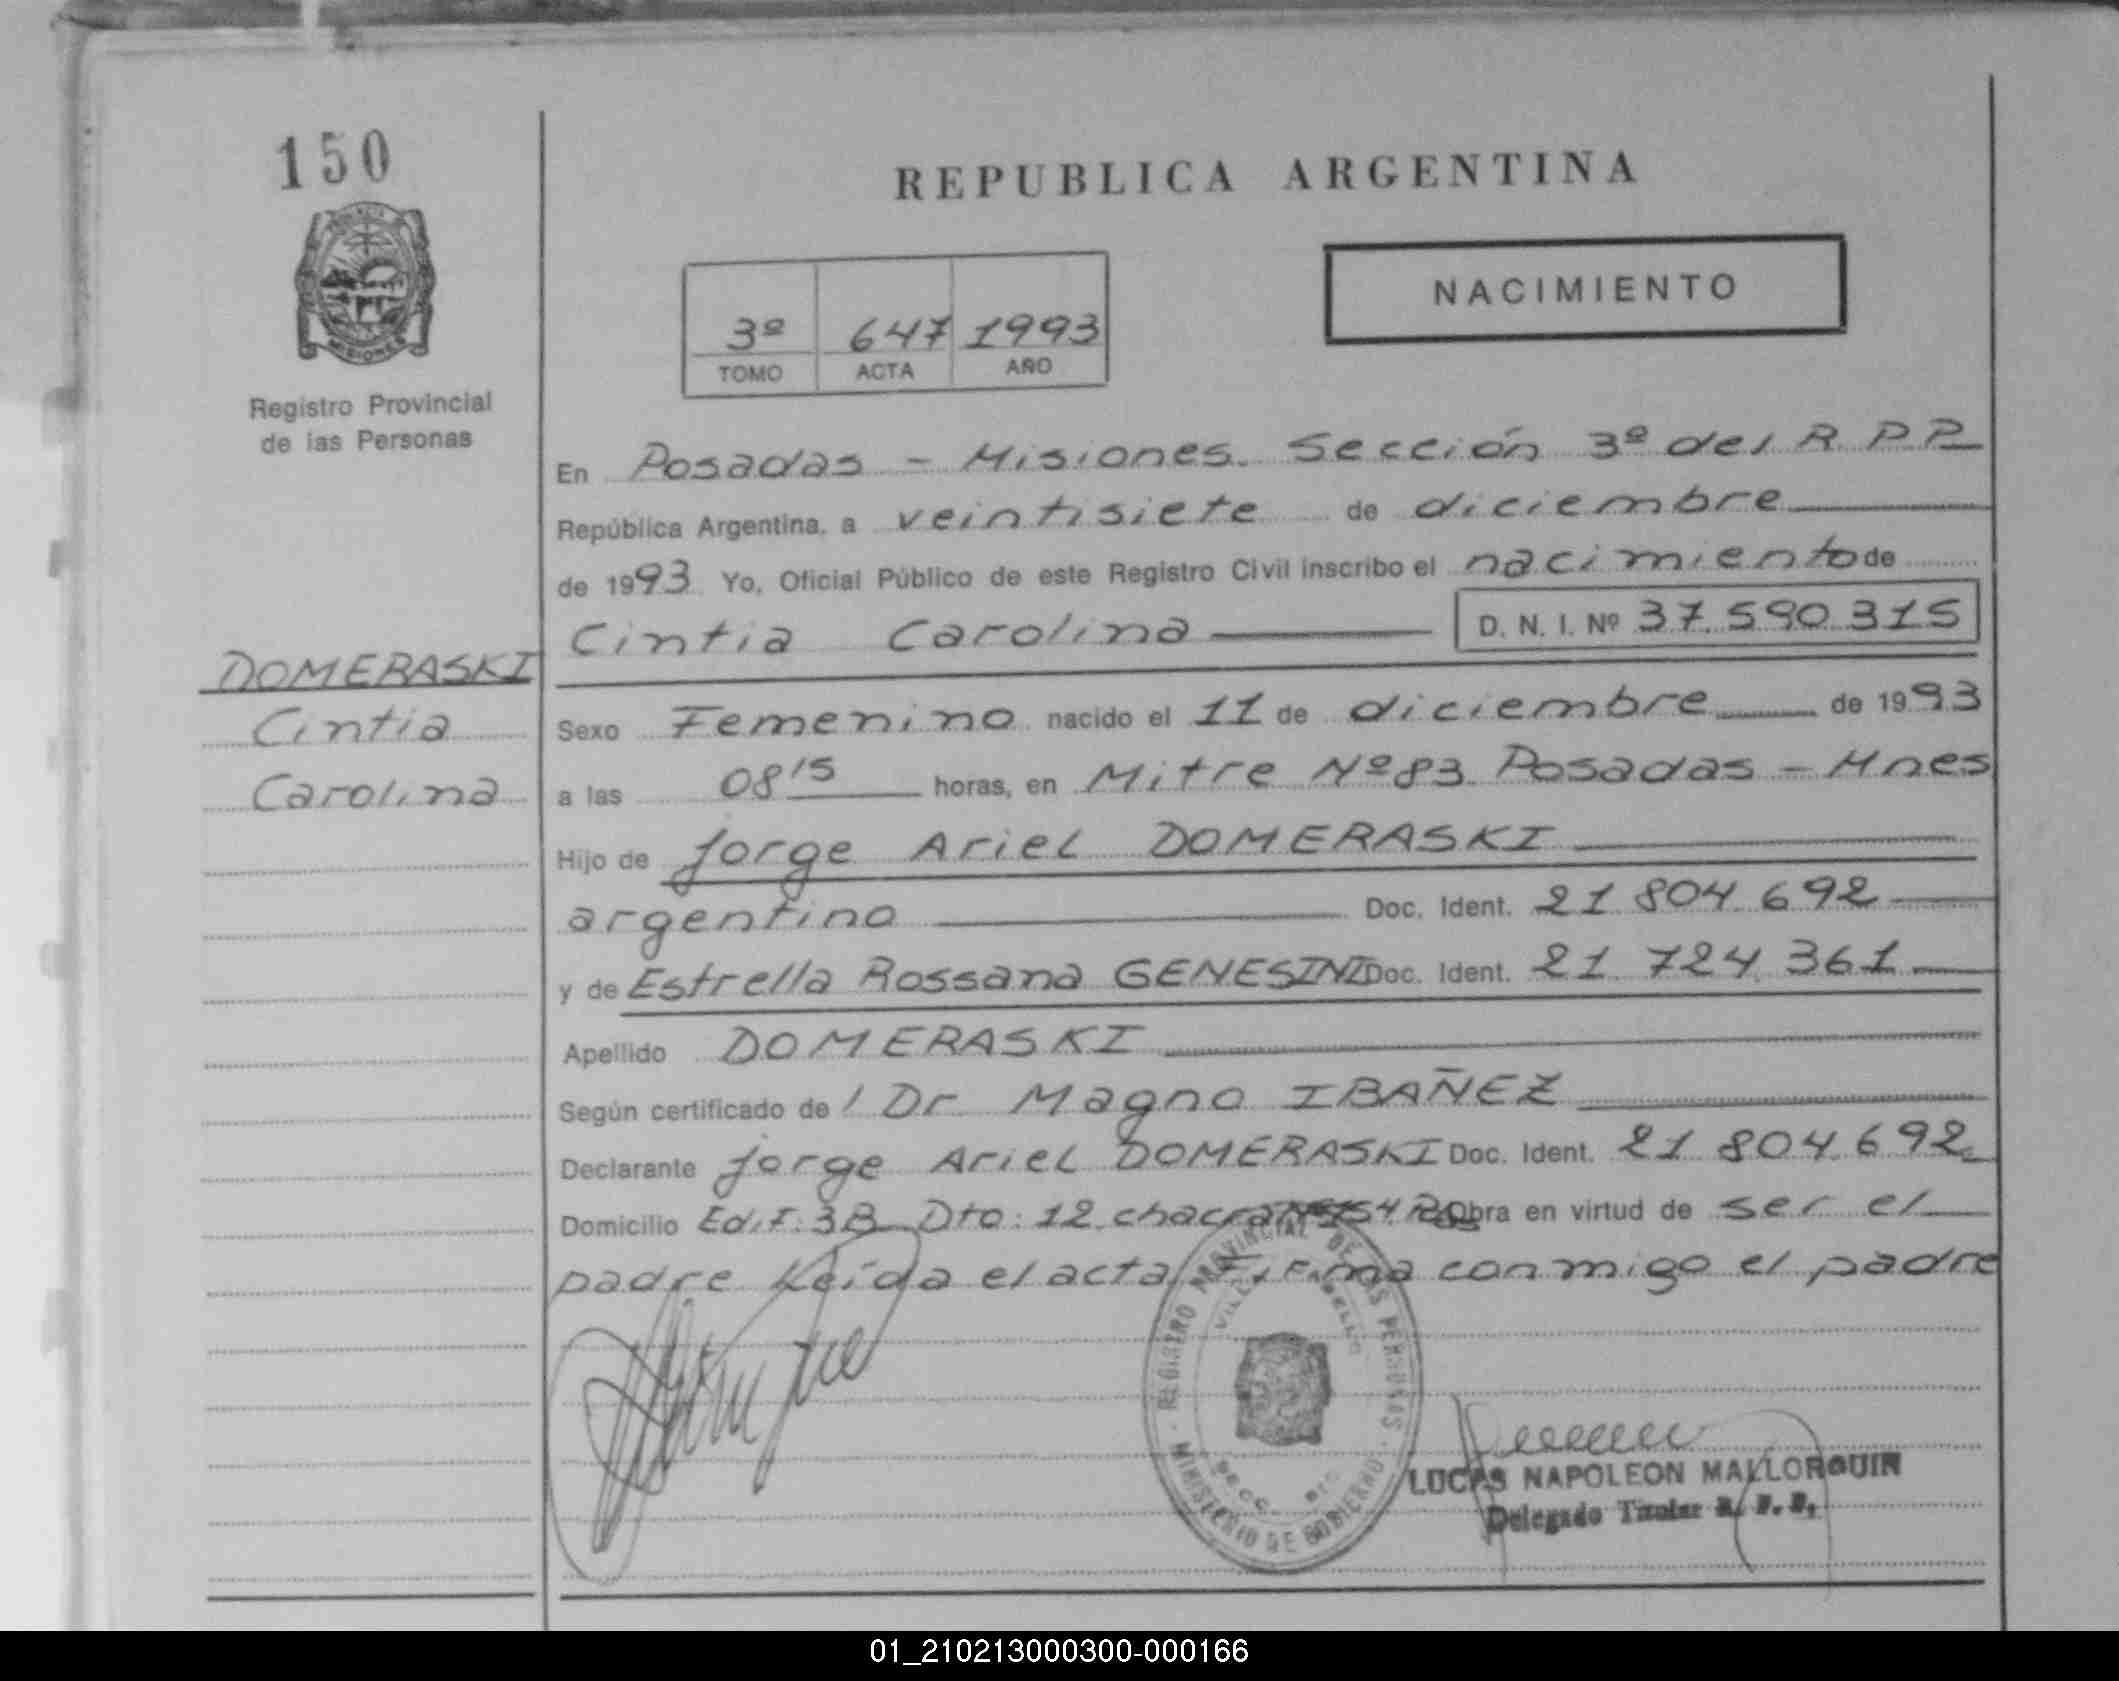 150
REPUBLICA ARGENTINA
NACIMIENTO
3º 647 1993
TOMO ACTA AÑO
MISIONES
Registro Provincial
de las Personas
En Posadas - Misiones. Sección 3º del R.P.P.
República Argentina, a veintisiete de diciembre
de 1993 Yo, Oficial Público de este Registro Civil inscribo el nacimiento de
Cintia Carolina D. N. I. Nº 37.590.315
DOMERASKI
Cintia
Carolina
Sexo Femenino nacido el 11 de diciembre de 1993
a las 08 15 horas, en Mitre Nº 83 Posadas - Mnes
Hijo de Jorge Ariel DOMERASKI
argentino Doc. Ident. 21 804 692
y de Estrella Rossana GENESINI Doc. Ident. 21 724 361
Apellido DOMERASKI
Según certificado de / Dr Magno IBAÑEZ
Declarante Jorge Ariel DOMERASKI Doc. Ident. 21 804.692
Domicilio Edif. 3B Dto: 12 chacra Obra en virtud de ser el
padre Leída el acta Firma conmigo el padre
REGISTRO PROVINCIAL DE LAS PERSONAS
MINISTERIO DE GOBIERNO
LUCAS NAPOLEON MALLORQUIN
Delegado Titular R. P. P.
01_210213000300-000166